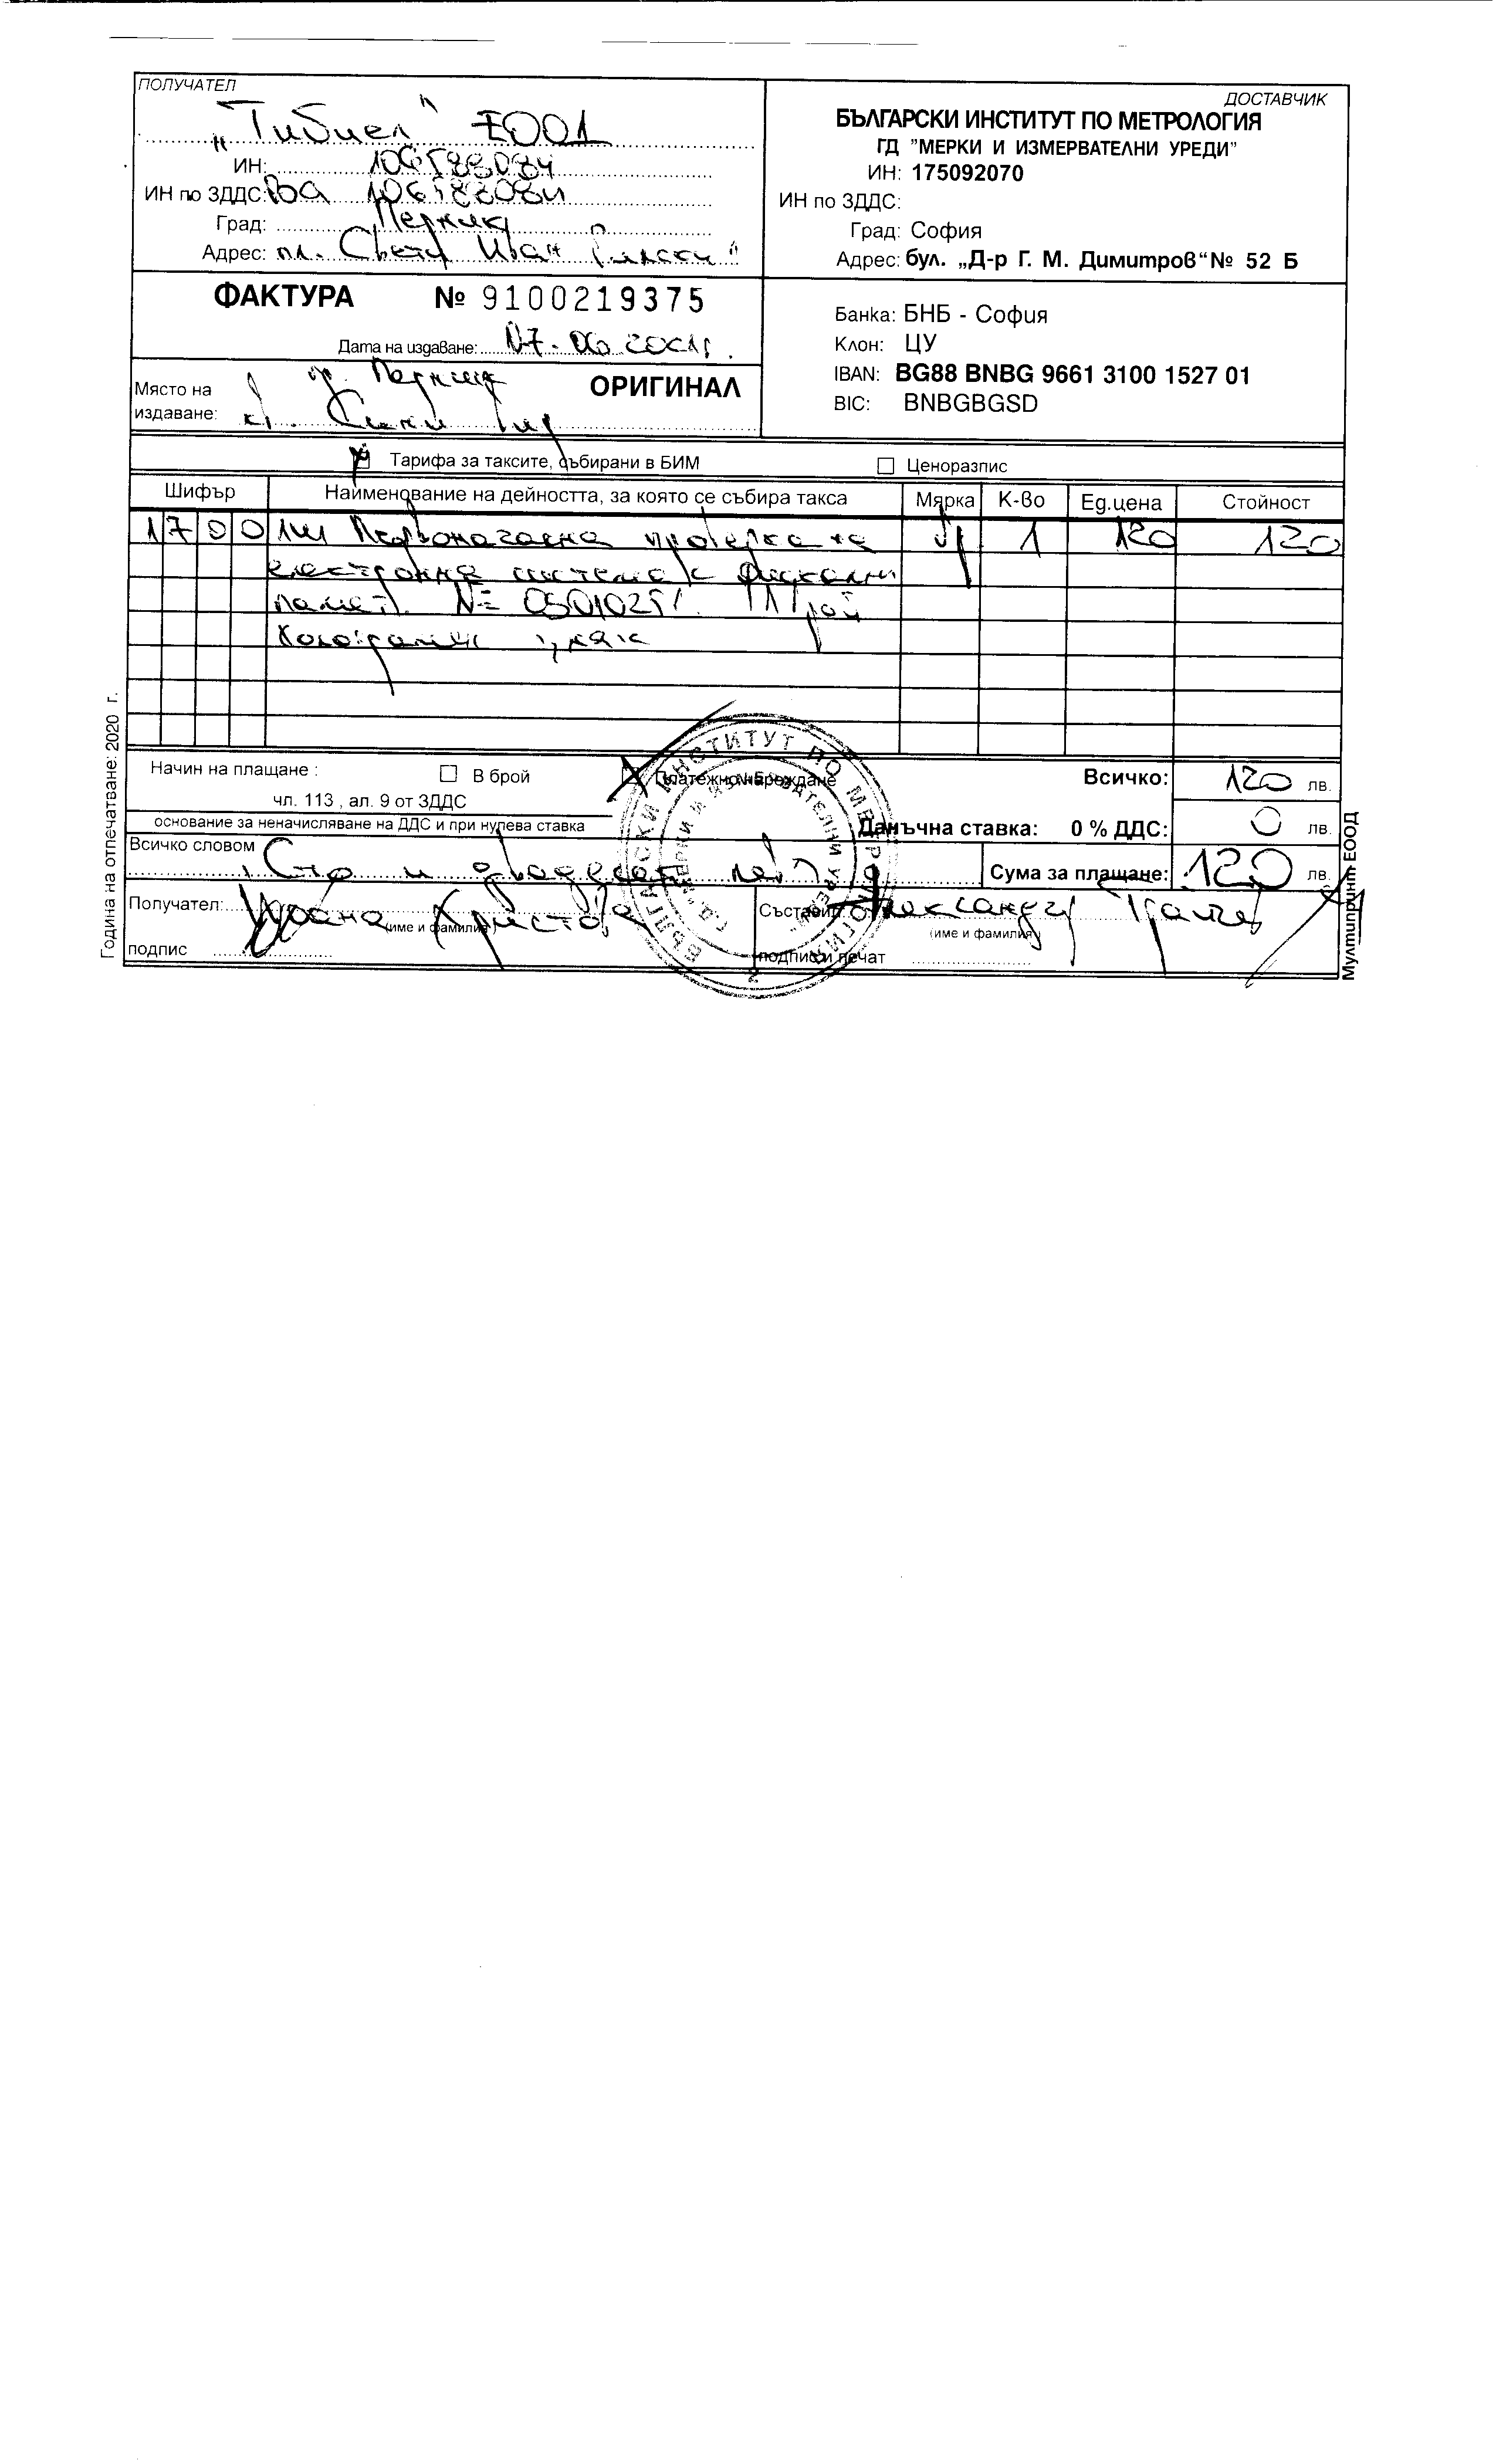 ПОЛУЧАТЕЛ
„Тибиел“ ЕООД
ИН: 106588084
ИН по ЗДДС: BG 106588084
Град: Перник
Адрес: пл. Свети Иван Рилски"
ДОСТАВЧИК
БЪЛГАРСКИ ИНСТИТУТ ПО МЕТРОЛОГИЯ
ГД "МЕРКИ И ИЗМЕРВАТЕЛНИ УРЕДИ"
ИН: 175092070
ИН по ЗДДС:
Град: София
Адрес: бул. „Д-р Г. М. Димитров“ № 52 Б
ФАКТУРА № 9100219375
Дата на издаване: 07.06.2021г.
Място на издаване: гр. Перник
ОРИГИНАЛ
Банка: БНБ - София
Клон: ЦУ
IBAN: BG88 BNBG 9661 3100 1527 01
BIC: BNBGBGSD
Тарифа за таксите, събирани в БИМ
Ценоразпис
Шифър Наименование на дейността, за която се събира такса Мярка К-во Ед.цена Стойност
1 7 0 0 Първоначална проверка на 1 120 120
електронна система с фискална
памет. № 05010251
Начин на плащане : В брой Платежно нареждане
чл. 113 , ал. 9 от ЗДДС
основание за неначисляване на ДДС и при нулева ставка
Всичко: 120 лв.
Данъчна ставка: 0 % ДДС: 0 лв.
Всичко словом Сто и двадесет лева
Сума за плащане: 120 лв.
Получател: Христова
(име и фамилия)
подпис
Съставил: Александър
(име и фамилия)
подпис и печат
БЪЛГАРСКИ ИНСТИТУТ ПО МЕТРОЛОГИЯ
ГД "МЕРКИ И ИЗМЕРВАТЕЛНИ УРЕДИ"
2
Година на отпечатване: 2020 г.
Мултипринт ЕООД